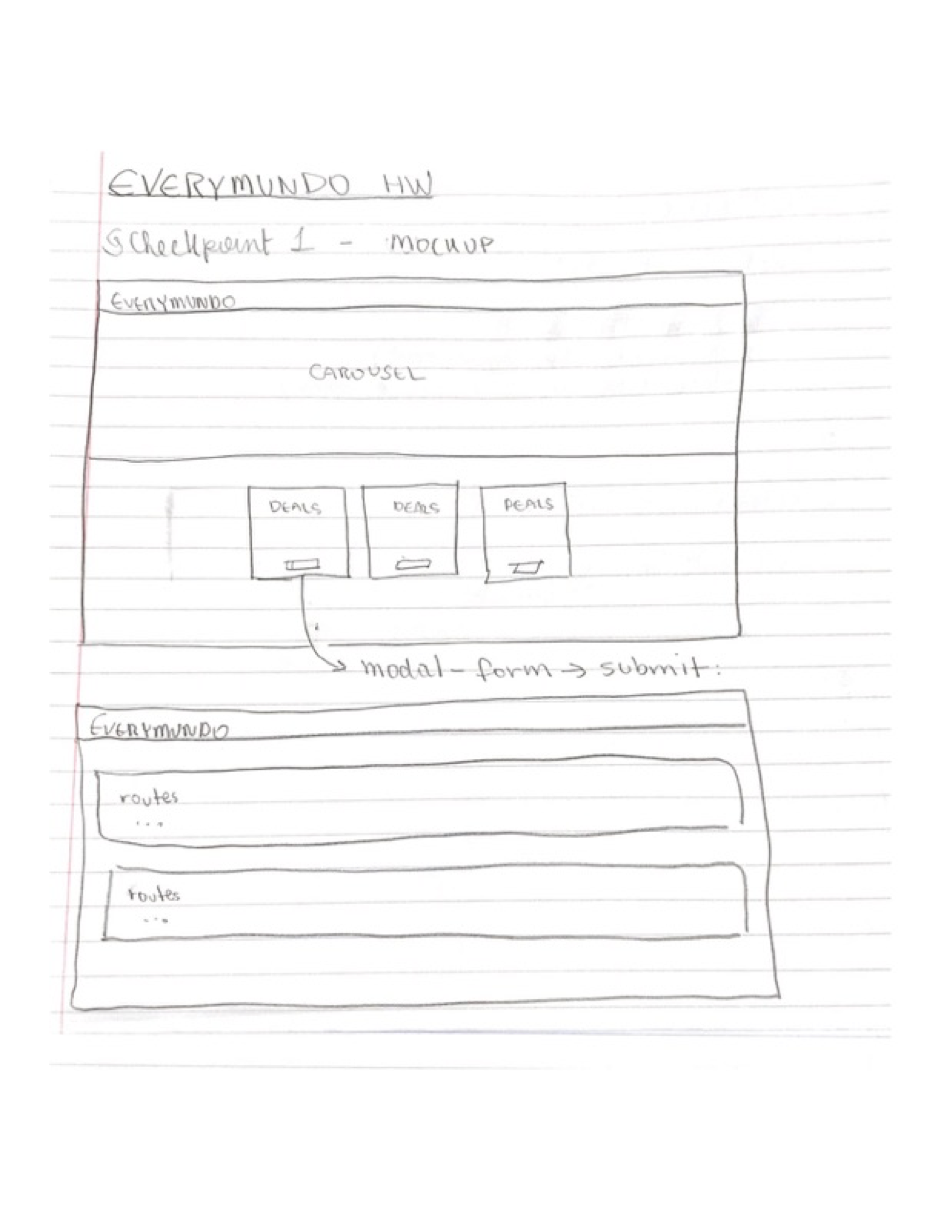 EVERYMUNDO HW
Checkpoint 1 - MOCKUP
EVERYMUNDO
CAROUSEL
DEALS DEALS DEALS
modal-form → submit:
EVERYMUNDO
routes
...
routes
...